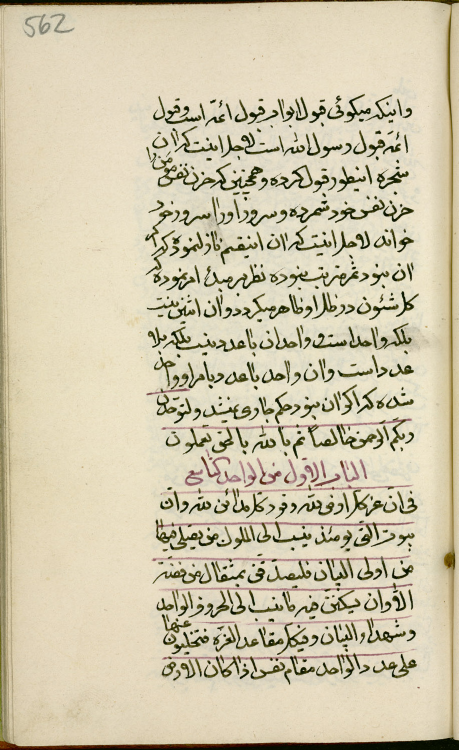 562
و اینکه میگوئی قول ابواب قول ائمه است و قول
ائمه قول رسول الله است لاجل اینست که ان
شجره اینطور قول کرده و همچنین که حزن نفس مؤمن را
حزن نفس خود شمرده و سرور او را سرور خود
خوانده لاجل اینست که ان اینقسم نازل نموده که اگر
ان نبود ثمر مرتب نبوده نظر بمبدء امر نموده که
کل شئون در ظل او ظاهر میگردد و ان اثنین نیست
بلکه واحد است و واحد ان با عدد نیست بلکه بلا
عدد است و ان واحد با عدد بامر او واحد
شده که اگر ان نبود حکم جاری نمیشد
ربکم الرحمن خالصا ثم بالله بالحق تعملون
الباب الاول من الواحد التاسع
فی ان عز کل ارض لله وفوق کل
بیوت التی یومئذ ینسب الی الملوک من یصلی فیها
من اولی البیان فلیصدقن بمثقال من فضة
الا وان یکونن فیه ما ینسب الی الحروف الواحد
و شهداء البیان وفی کل مقاعد العزة فتخلیون عنها
علی عدد الواحد مقام نفس اذا کان الارض